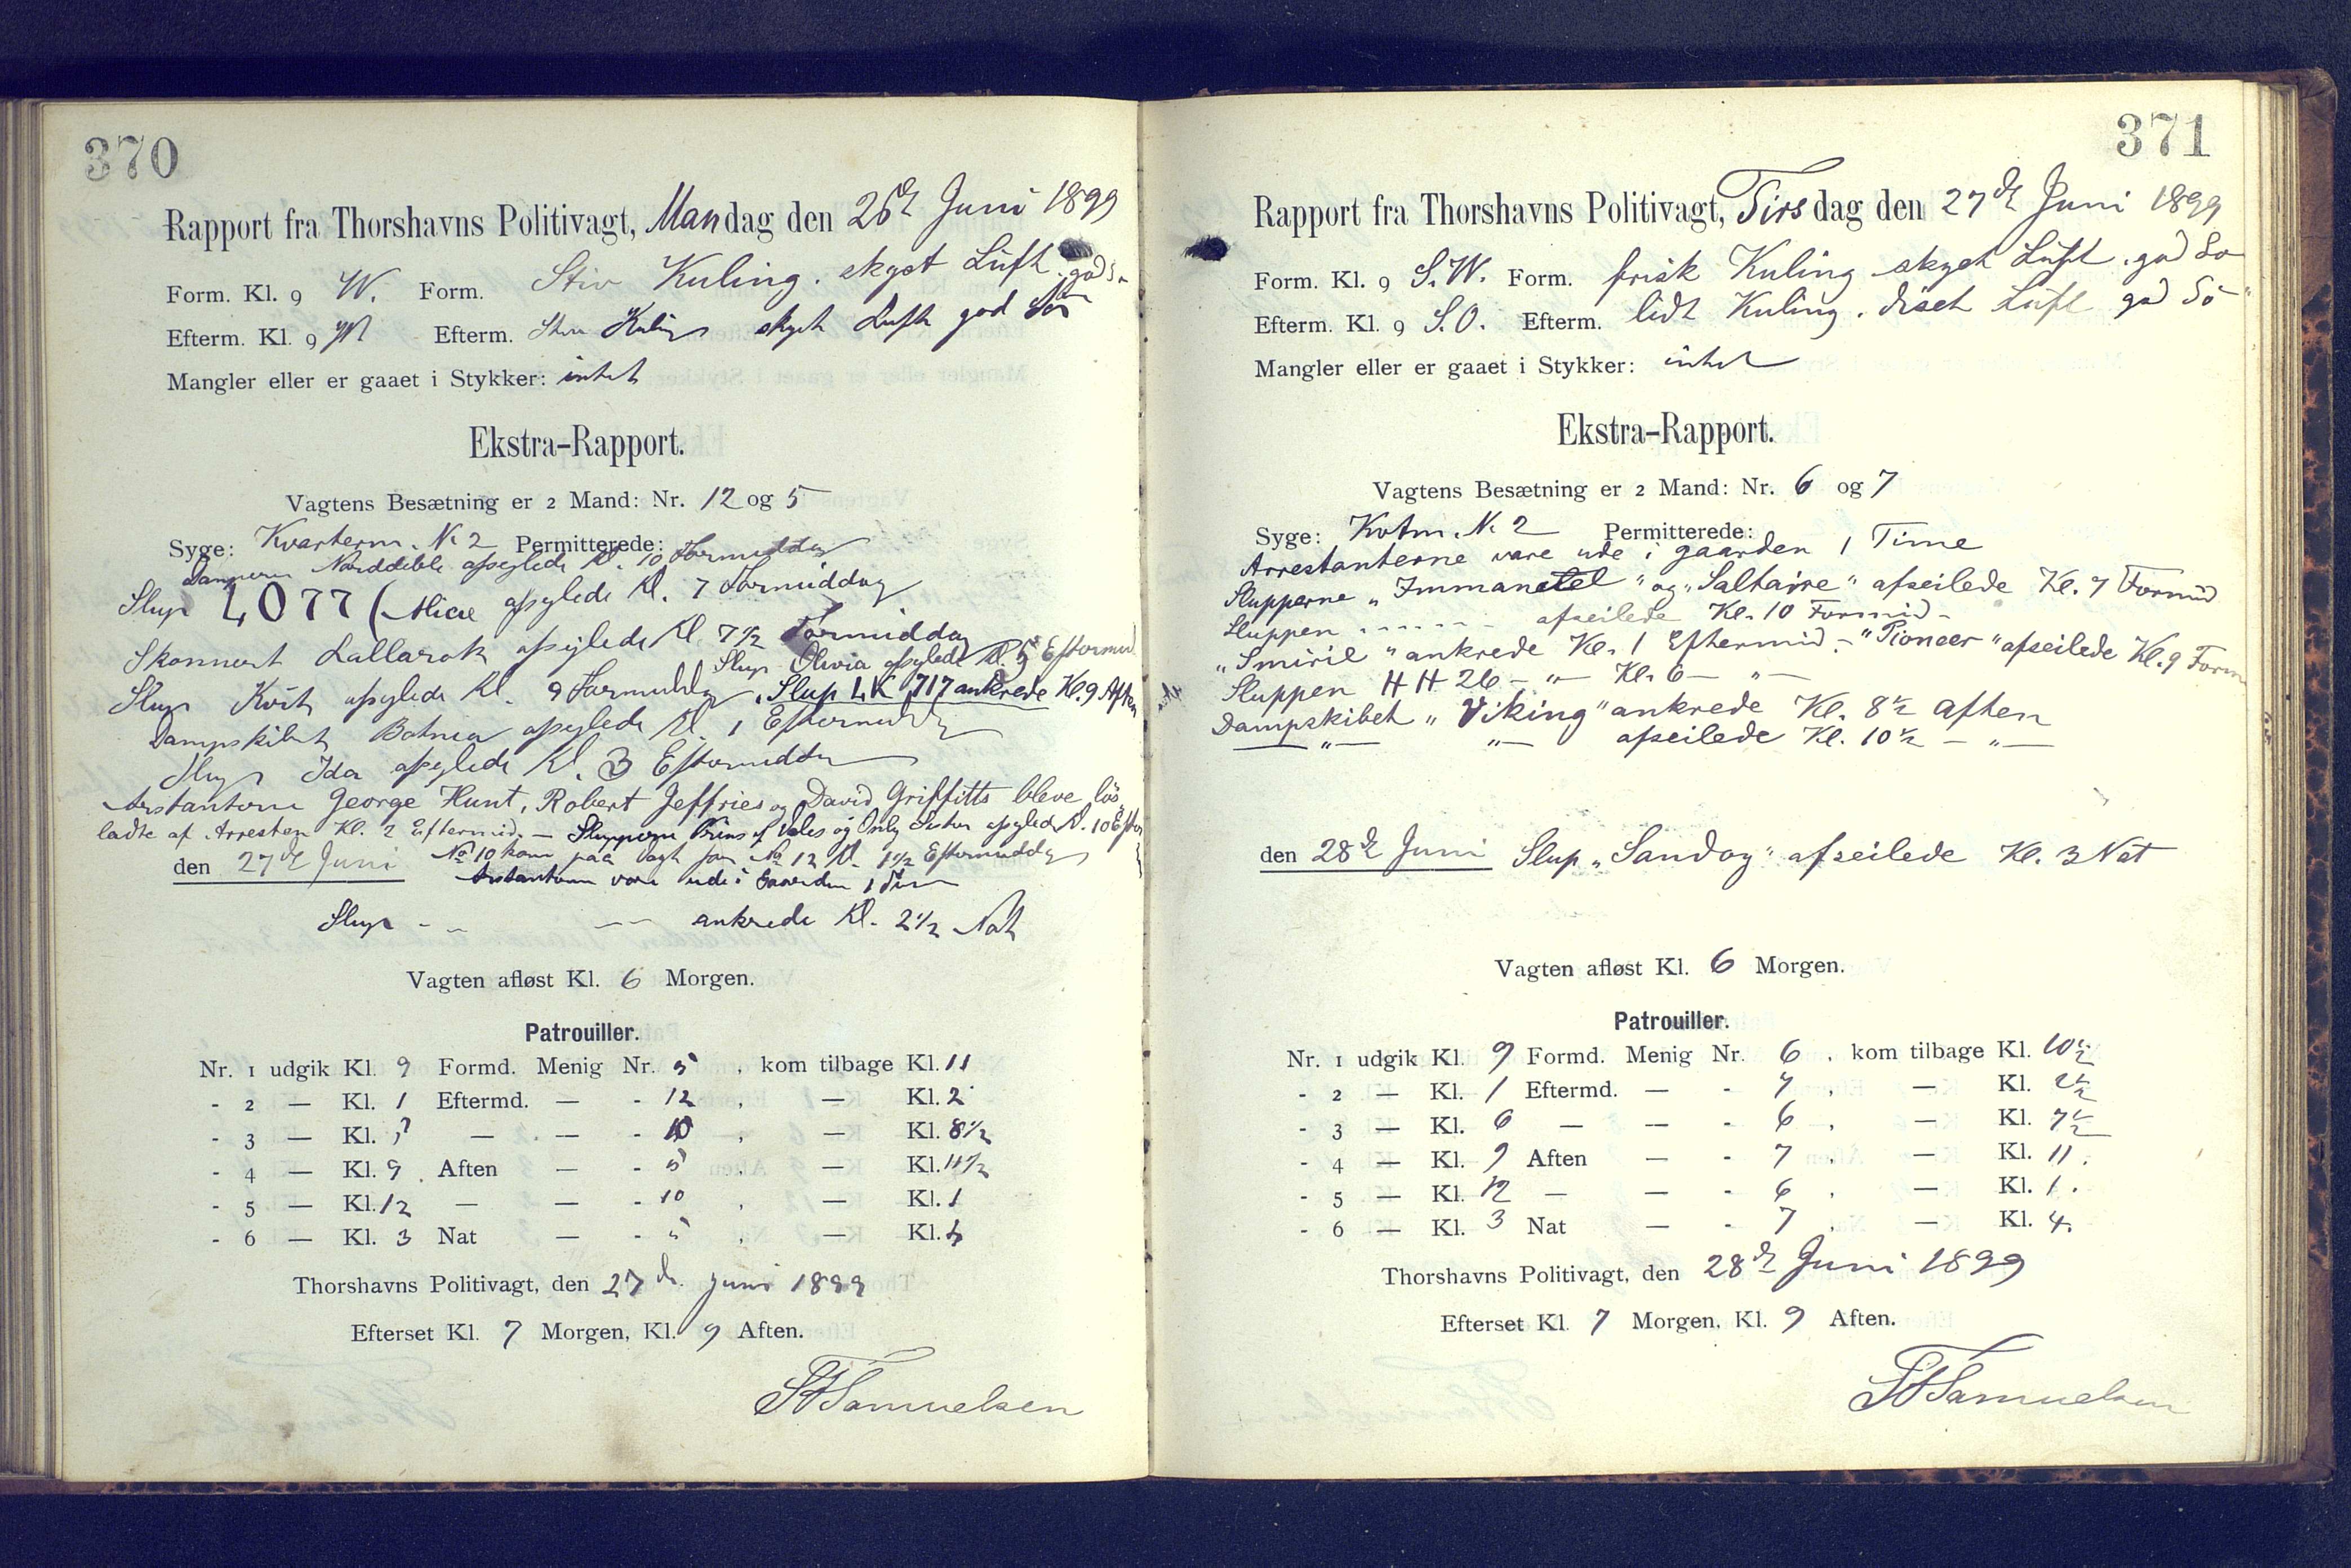 370
Rapport fra Thorshavns Politivagt, Mandag den 26d Juni 1899
Form. Kl. 9 W. Form. Stiv Kuling. skyet Luft. god Sø
Efterm. Kl. 9 W Efterm. Stiv Kuling skyet Luft god Sø
Mangler eller er gaaet i Stykker: intet
Ekstra-Rapport.
Vagtens Besætning er 2 Mand: Nr. 12 og 5
Syge: Kvarterm. N. 2 Permitterede:
Norddeble afseglede Kl. 10 Formiddag
Slup LO 77 (Alice afseglede Kl. 7 Formiddag
Skonnert Lallarok afseglede Kl. 7 1/2 Formiddag
Slup Olivia afseglede Kl. 5 Eftermid
Slup Kvit afseglede Kl. 9 Formiddag. Slup LK 717 ankrede Kl. 9 Aften
Dampskibet Botnia afseglede Kl. 1 Eftermiddag
Slup Ida afseglede Kl. 3 Eftermiddag
Arstanterne George Hunt, Robert Jeffries og David Griffitts bleve lös
ladte af Arresten Kl. 2 Eftermid. - Slupperne Prins of Vales og Only Sister afseglede Kl. 10 Efter
den 27d Juni No 10 kom paa Vagt for No 12 Kl. 1 1/2 Eftermiddag
Arstanterne vare ude i Gaarden 1 Time
Slup - - — ankrede Kl. 2 1/2 Nat
Vagten afløst Kl. 6 Morgen.
Patrouiller.
Nr. 1 udgik Kl. 9 Formd. Menig Nr. 5, kom tilbage Kl. 11
- 2 — Kl. 1 Eftermd. — - 12, — Kl. 2
- 3 — Kl. 7 — — - 10, — Kl. 8 1/2
- 4 — Kl. 9 Aften — - 5, — Kl. 11 1/2
- 5 — Kl. 12 — — - 10, — Kl. 1
- 6 — Kl. 3 Nat — - 5, — Kl. 4
Thorshavns Politivagt, den 27d. Juni 1899
Efterset Kl. 7 Morgen, Kl. 9 Aften.
Samuelsen
371
Rapport fra Thorshavns Politivagt, Tirsdag den 27d Juni 1899
Form. Kl. 9 S.W. Form. frisk Kuling skyet Luft. god Sø
Efterm. Kl. 9 S.O. Efterm. lidt Kuling. diset Luft god Sö
Mangler eller er gaaet i Stykker: intet
Ekstra-Rapport.
Vagtens Besætning er 2 Mand: Nr. 6 og 7
Syge: Kvtm. N. 2 Permitterede:
Arrestanterne vare ude i gaarden 1 Time
Slupperne "Immanuel" og "Saltaire" afseilede Kl. 7 Formid
Sluppen - - - - - - afseilede Kl. 10 Formid -
"Smiril" ankrede Kl. 1 Eftermid. - "Pioneer" afseilede Kl. 9 Form
Sluppen HH 26 - " - Kl. 6 - " -
Dampskibet "Viking" ankrede Kl. 8 1/2 Aften
— " — " — afseilede Kl. 10 1/2 - " -
den 28d Juni Slup "Sandoy" afseilede Kl. 3 Nat
Vagten afløst Kl. 6 Morgen.
Patrouiller.
Nr. 1 udgik Kl. 9 Formd. Menig Nr. 6, kom tilbage Kl. 10 1/2
- 2 — Kl. 1 Eftermd. — - 7, — Kl. 2 1/2
- 3 — Kl. 6 — — - 6, — Kl. 7 1/2
- 4 — Kl. 9 Aften — - 7, — Kl. 11.
- 5 — Kl. 12 — — - 6, — Kl. 1.
- 6 — Kl. 3 Nat — - 7, — Kl. 4.
Thorshavns Politivagt, den 28d Juni 1899
Efterset Kl. 7 Morgen, Kl. 9 Aften.
Samuelsen